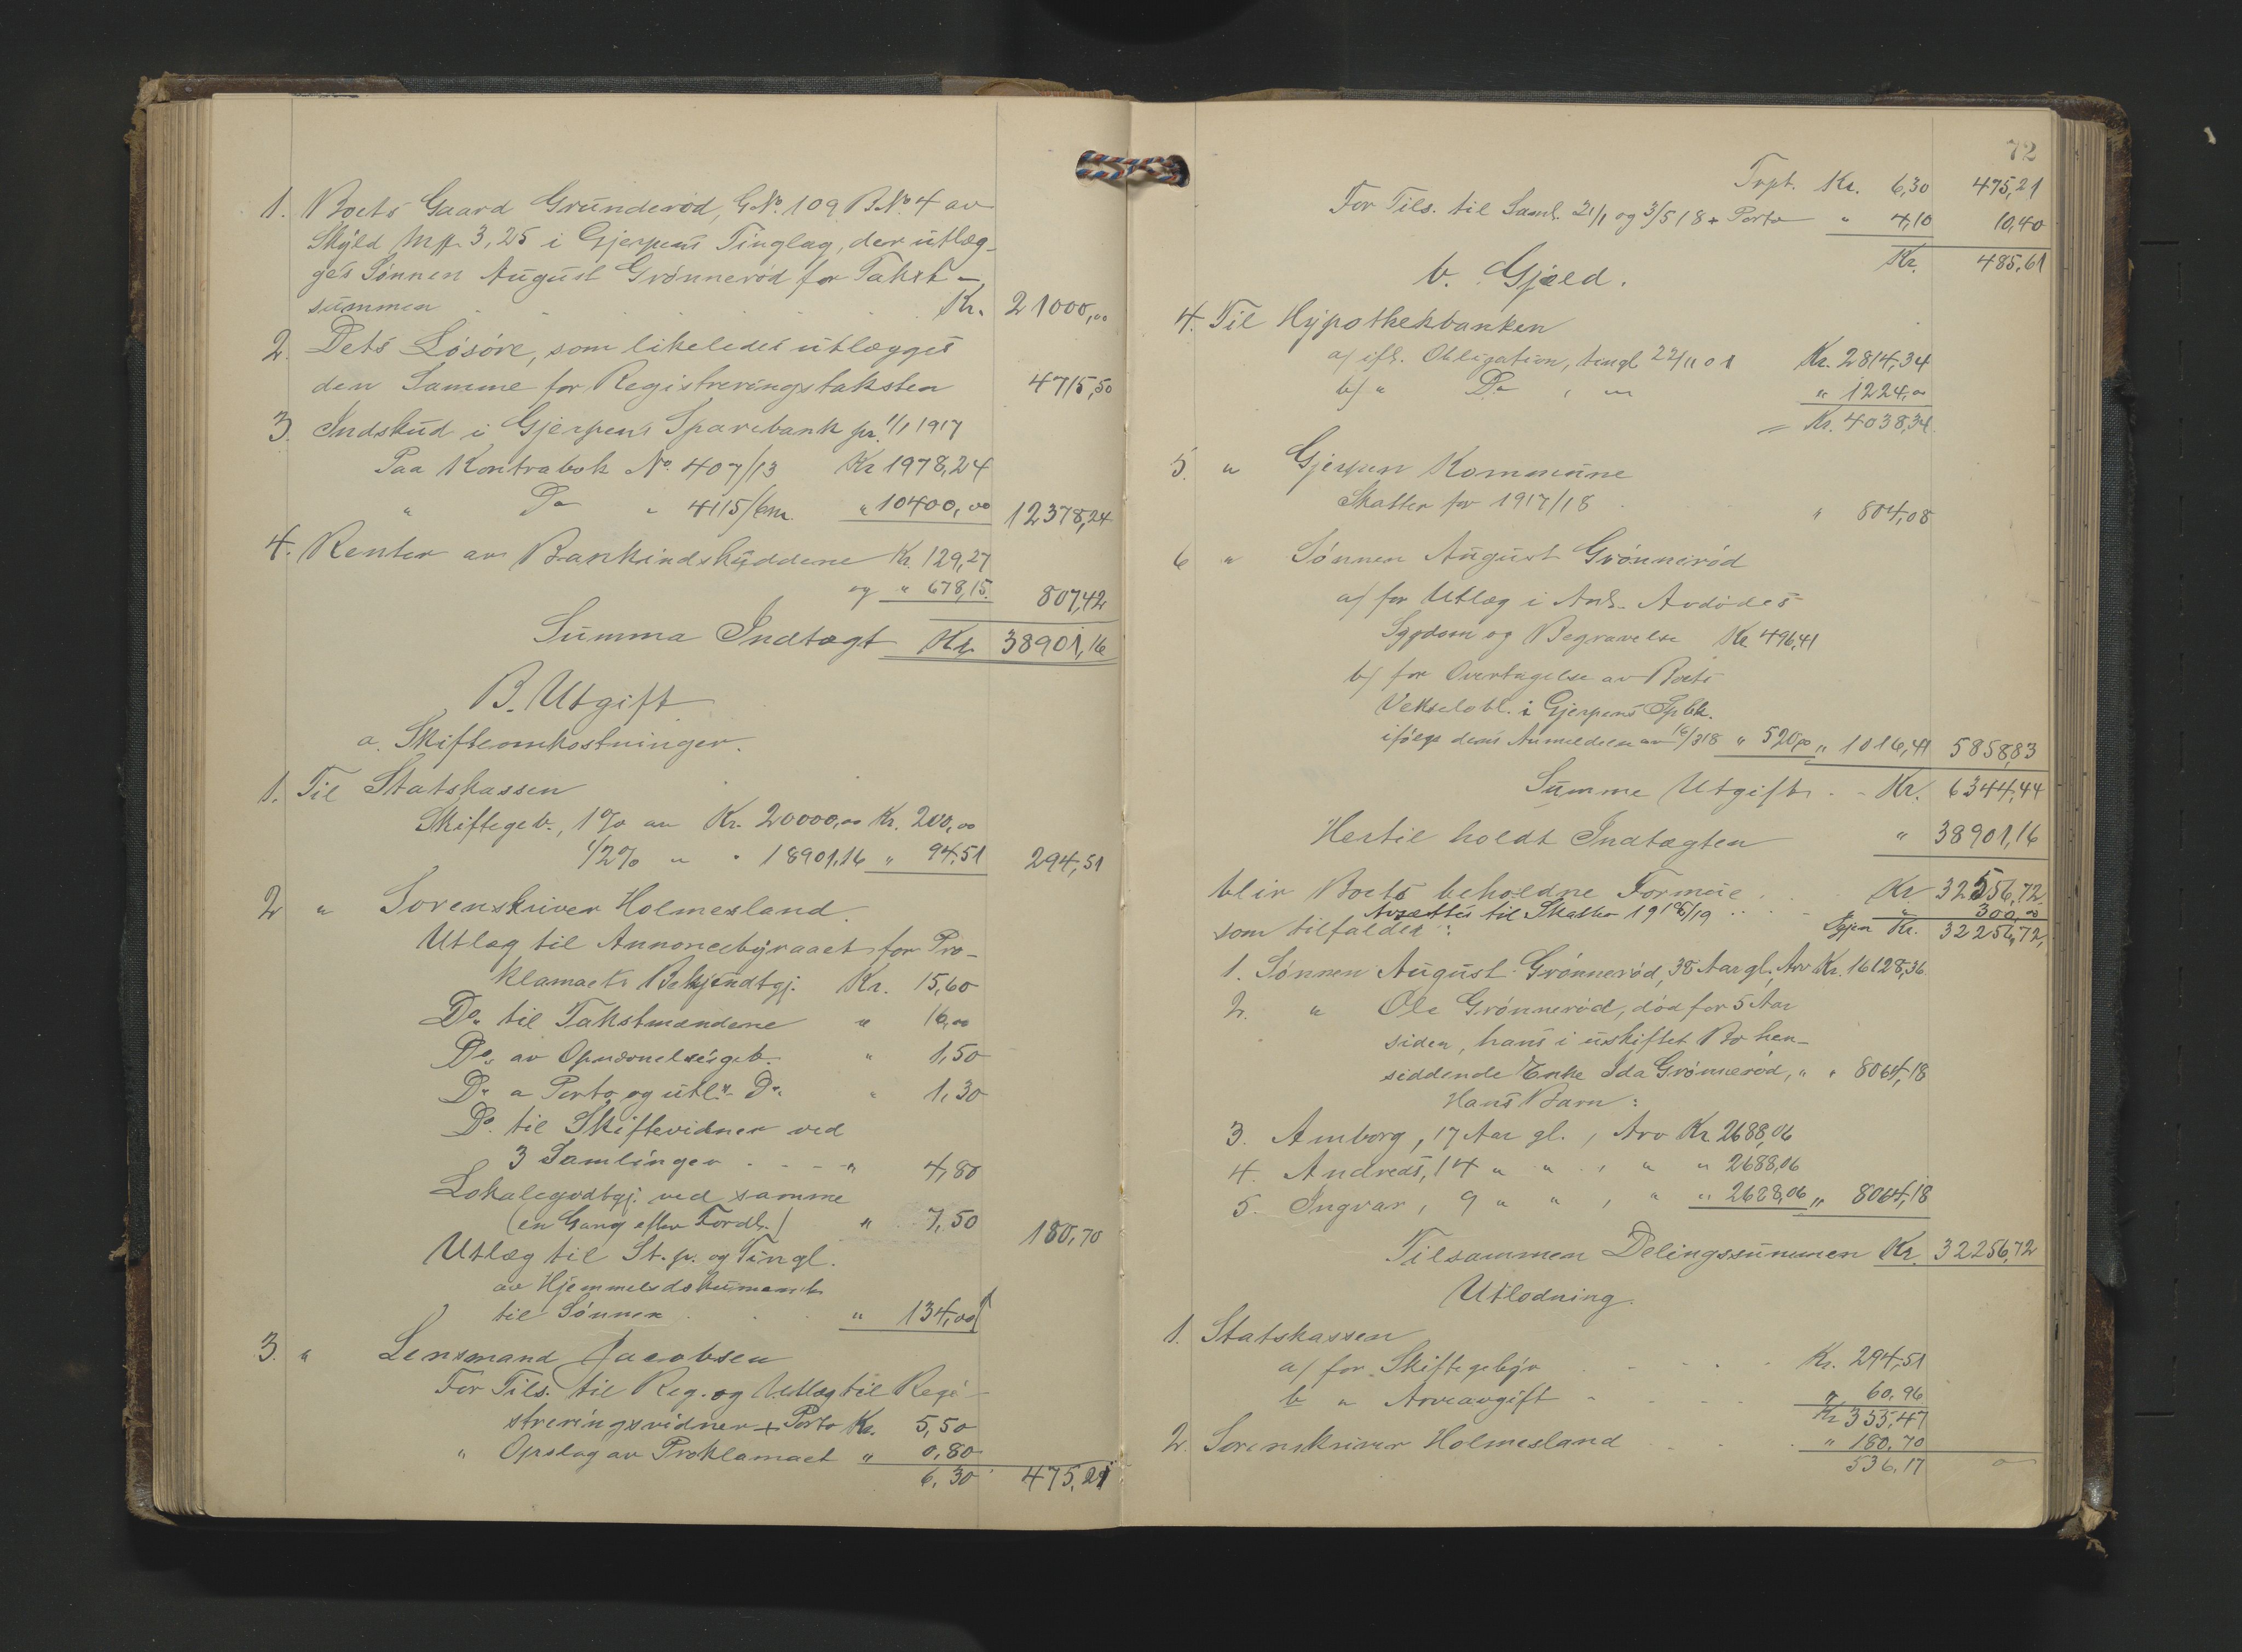 1. Boets Gaard Grunderød, GNo. 109 BNo 4 av
Skyld Mk 3,25 i Gjerpens Tinglag, der utlæg-
ges Sønnen August Grönnerød for Takst-
summen Kr. 21000,00
2. Dets Løsøre, som likeledes utlægges
den Samme for Registreringstaksten 4715,50
3. Indskud i Gjerpens Sparebank pr. 1/1 1917
Paa Kontrabok No 407/13 Kr 1978,24
" Do " 4115/6m. " 10400,00 12378,24
4. Renter av Bankindskuddene Kr. 129,27
og " 678,15. 807,42
Summa Indtægt Kr. 38901,16
B. Utgift
a. Skifteomkostninger.
1. Til Statskassen
Skiftegeb., 1% av Kr. 20000,00 Kr. 200,00
1/2% " " 18901,16 " 94,51 294,51
2 " Sorenskriver Holmesland.
Utlæg til Annoncebyraaet for Pro-
klamaets Bekjendtgj. Kr. 15,60
Do. til Takstmændene " 16,00
Do. av Opnævnelsesgeb. " 1,50
Do a Porto og utl. Do. " 1,30
Do. til Skiftevidner ved
3 Samlinger . - - - " 4,80
Lokalegodtgj. ved samme
(en Gang efter Fordl.) " 7,50 180,70
Utlæg til St.p. og Tingl.
av Hjemmelsdokument
til Sønnen " 134,00
3. " Lensmand Jacobsen
For Tils. til Reg. og Utlæg til Regi-
streringsvidner + Porto Kr. 5,50
" Opslag av Proklamaet " 0,80
6,30 475,21
72
Trpt. Kr. 6,30 475,21
For Tils. til Saml. 21/1 og 3/5 18 + Porto " 4,10 10,40
Kr. 485,61
b. Gjæld.
4. Til Hypothekbanken
a/ ifl. Obligation, tingl 22/11 01 Kr. 2814,34
b/ " Do , " " 1224,00
= Kr. 4038,34
5. " Gjerpen Kommune
Skatter for 1917/18 " 804,08
6 " Sønnen August Grönnerød
a/ for Utlæg i Anl. Avdødes
Sygdom og Begravelse Kr 496,41
b/ for Overtagelse av Boets
Vekselobl. i Gjerpens Spbk.
ifølge dens Anmeldelse av 16/3 18 " 520,00 " 1016,41 5858,83
Summe Utgift . - Kr. 6344,44
Hertil holdt Indtægten " 38901,16
blir Boets beholdne Formue . . Kr 32556,72
Avsættes til Skatter 1918/19 . . . - " 300,00
som tilfalder: Igjen Kr. 32256,72,
1. Sønnen August Grönnerød, 38 Aar gl., Arv Kr. 16128,36
2. " Ole Grønnerød, død for 5 Aar
siden, hans i uskiftet Bo hen-
siddende Enke Ida Grönnerød, " " 8064,18
Hans Barn:
3. Amborg, 17 Aar gl., Arv Kr 2688,06
4. Andreas, 14 " " , " " 2688,06
5. Ingvar, 9 " " , " " 2688,06 " 8064,18
Tilsammen Delingssummen Kr. 32256,72
Utlodning.
1. Statskassen
a/ for Skiftegebyr - - . . Kr. 294,51
b " Arveavgift - - - - " 60,96
Kr 355,47
2. Sorenskriver Holmesland - . . " 180,70
536,17